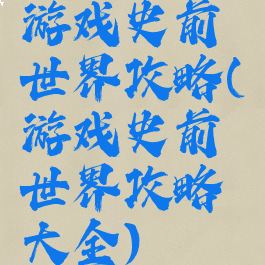 游戏史前
世界攻略(
游戏史前
世界攻略
大全)